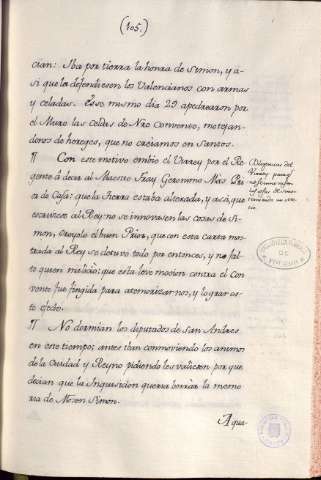 (105.)
cian: Iba por tierra la honra de Simon, y á-
si que la defendiesen los Valencianos con armas
y celadas. Esso mismo dia 29 apedrearon por
el Muro las celdas de Nro Convento, motejan-
donos de hereges, que no creíamos en Santos.
¶ Con este motivo embió el Virrey por el Re-
gente á decir al Maestro Fray Geronimo Mos Pri-
or de Casa: que la tierra estaba alterada, y assi, que
escriviese al Rey no se innovasen las cosas de Si-
mon, creyólo el buen Prior, que con esta carta mos-
trada al Rey se detuvo todo por entonces, y no fal-
tó quien malició: que esta leve mocion contra el Con-
vento fue fingida para atemorizarnos, y lograr es-
te efecto.
¶ No dormian los diputados de San Andres
en este tiempo; antes iban conmoviendo los animos
de la Ciudad y Reyno pidiendoles valiesen por que
decian que la Inquisicion queria borrar la memo-
ria de Mosen Simon.
Aqua
Diligencias del
Virrey para q